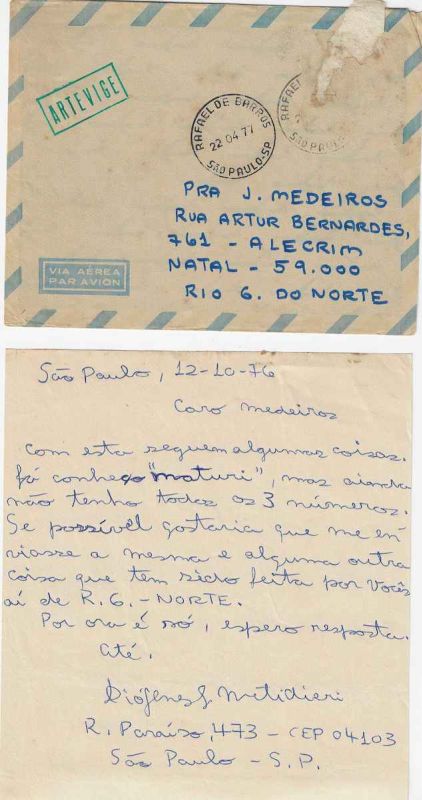 ARTEVIGE
RAFAEL DE BARROS
22 04 77
SÃO PAULO-SP
RAFAEL
SÃO PAULO
PRA J. MEDEIROS
RUA ARTUR BERNARDES,
761 - ALECRIM
NATAL - 59.000
RIO G. DO NORTE
VIA AÉREA
PAR AVION
São Paulo, 12-10-76
Caro medeiros
Com esta seguem algumas coisas.
Já conheço "maturi", mas ainda
não tenho todos os 3 números.
Se possível gostaria que me en
viasse a mesma e alguma outra
coisa que tem sido feita por vocês
aí de R. G. - NORTE.
Por ora é só, espero resposta.
Até.
Diógenes Metidieri
R. Paraíso, 473 - CEP 04103
São Paulo - S.P.